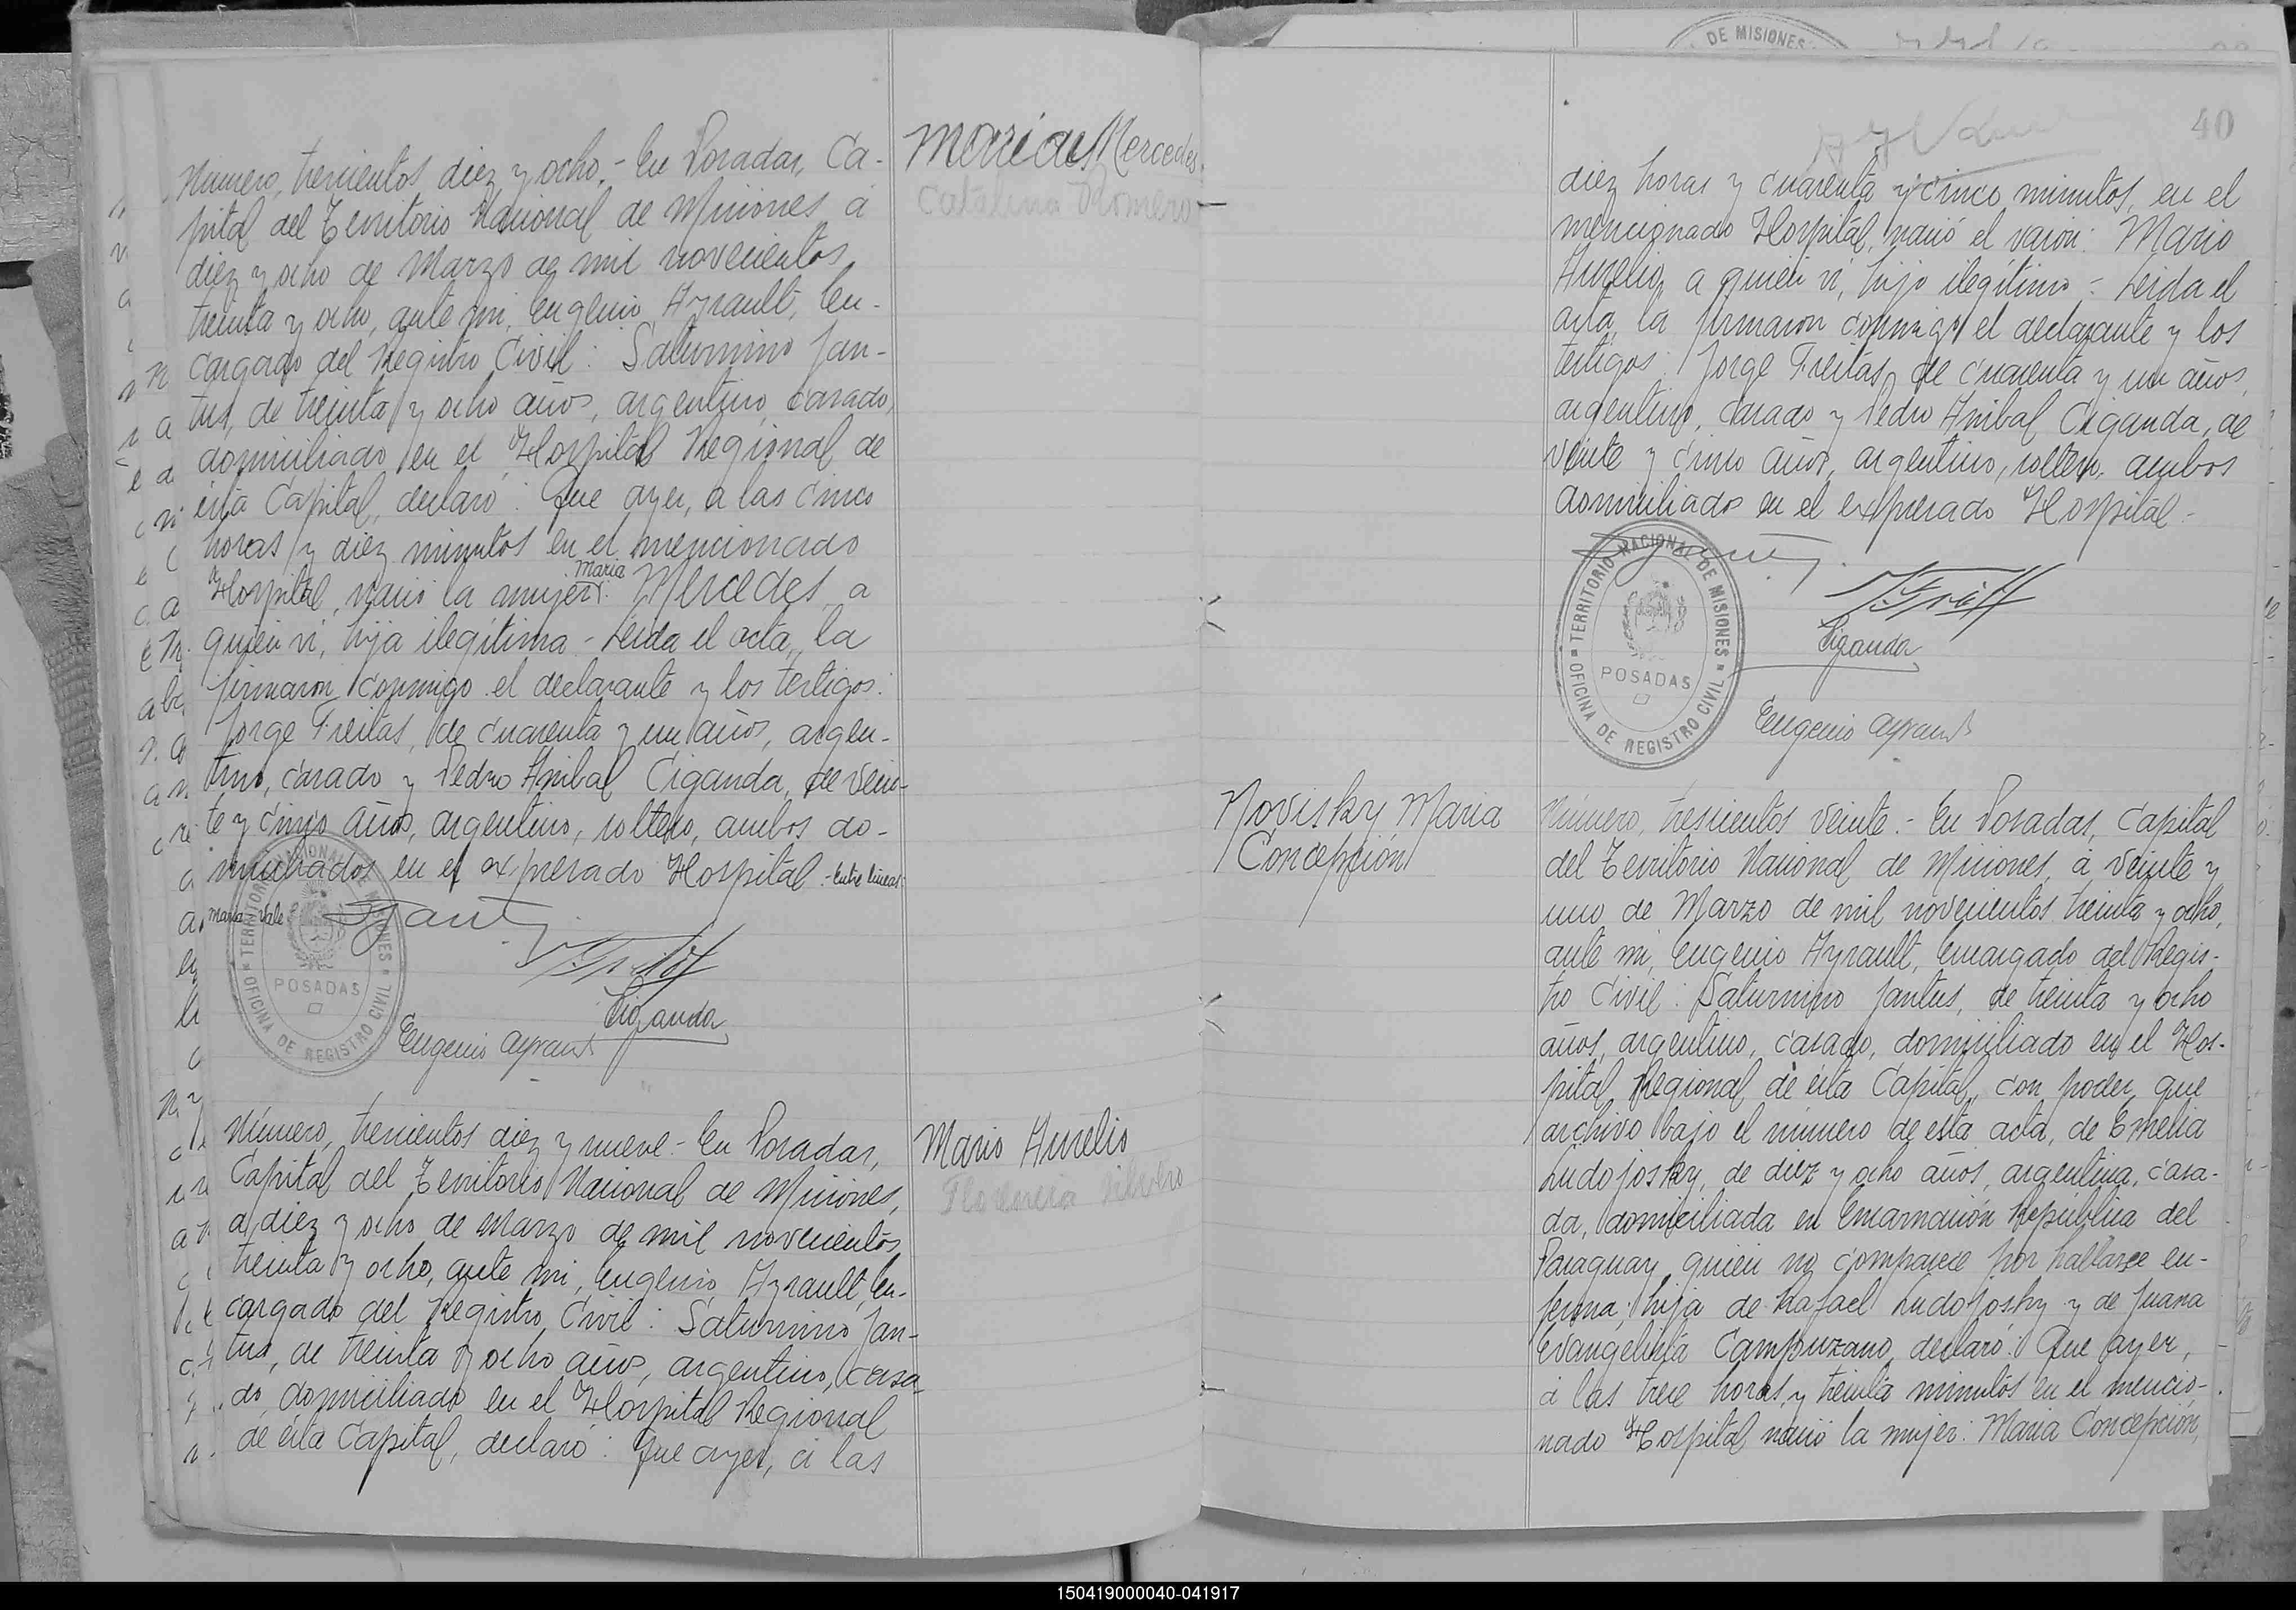 Maria Mercedes
Catalina Romero
Número, trescientos diez y ocho.- En Posadas, Ca-
pital del Territorio Nacional de Misiones, á
diez y ocho de Marzo de mil novecientos
treinta y ocho, ante mi, Eugenio Ayrault, En-
cargado del Registro Civil: Saturnino Jan-
tus, de treinta y ocho años, argentino, casado,
domiciliado en el Hospital Regional de
ésta Capital, declaró: Que ayer, a las cinco
horas y diez minutos en el mencionado
Maria
Hospital, nació la mujer: Mercedes, a
quien ví, hija ilegítima.- Leida el acta, la
firmaron conmigo el declarante y los testigos:
Jorge Freitas, de cuarenta y un años, argen-
tino, casado y Pedro Anibal Ciganda, de vein-
te y cinco años, argentino, soltero, ambos do-
miciliados en el expresado Hospital.- Entre lineas:
maria vale
TERRITORIO NACIONAL DE MISIONES
POSADAS
OFICINA DE REGISTRO CIVIL
Ciganda
Eugenio Ayrault
Mario Aurelio
Número, trescientos diez y nueve.- En Posadas,
Capital del Territorio Nacional de Misiones,
a diez y ocho de Marzo de mil novecientos
treinta y ocho, ante mi, Eugenio Ayrault, En-
cargado del Registro Civil: Saturnino Jan-
tus, de treinta y ocho años, argentino, casa-
do, domiciliado en el Hospital Regional
de ésta Capital, declaró: Que ayer, á las
DE MISIONES
40
diez horas y cuarenta y cinco minutos, en el
mencionado Hospital, nació el varón: Mario
Aurelio, a quien ví, hijo ilegítimo.- Leida el
acta, la firmaron conmigo el declarante y los
testigos: Jorge Freitas, de cuarenta y un años,
argentino, casado y Pedro Anibal Ciganda, de
veinte y cinco años, argentino, soltero, ambos
domiciliados en el expresado Hospital.-
TERRITORIO NACIONAL DE MISIONES
POSADAS
OFICINA DE REGISTRO CIVIL
Ciganda
Eugenio Ayrault
Novisky Maria
Concepción
Número, trescientos veinte.- En Posadas, Capital
del Territorio Nacional de Misiones, á veinte y
uno de Marzo de mil novecientos treinta y ocho,
ante mi, Eugenio Ayrault, Encargado del Regis-
tro Civil: Saturnino Jantus, de treinta y ocho
años, argentino, casado, domiciliado en el Hos-
pital Regional de ésta Capital, con poder, que
archivo bajo el número de esta acta, de Emelia
Ludojosky, de diez y ocho años, argentina, casa-
da, domiciliada en Encarnación República del
Paraguay, quien no comparece por hallarse en-
ferma; hija de Rafael Ludojosky y de Juana
Evangelista Campuzano, declaró: Que ayer,
á las trece horas y treinta minutos en el mencio-
nado Hospital nació la mujer: Maria Concepción,
150419000040-041917